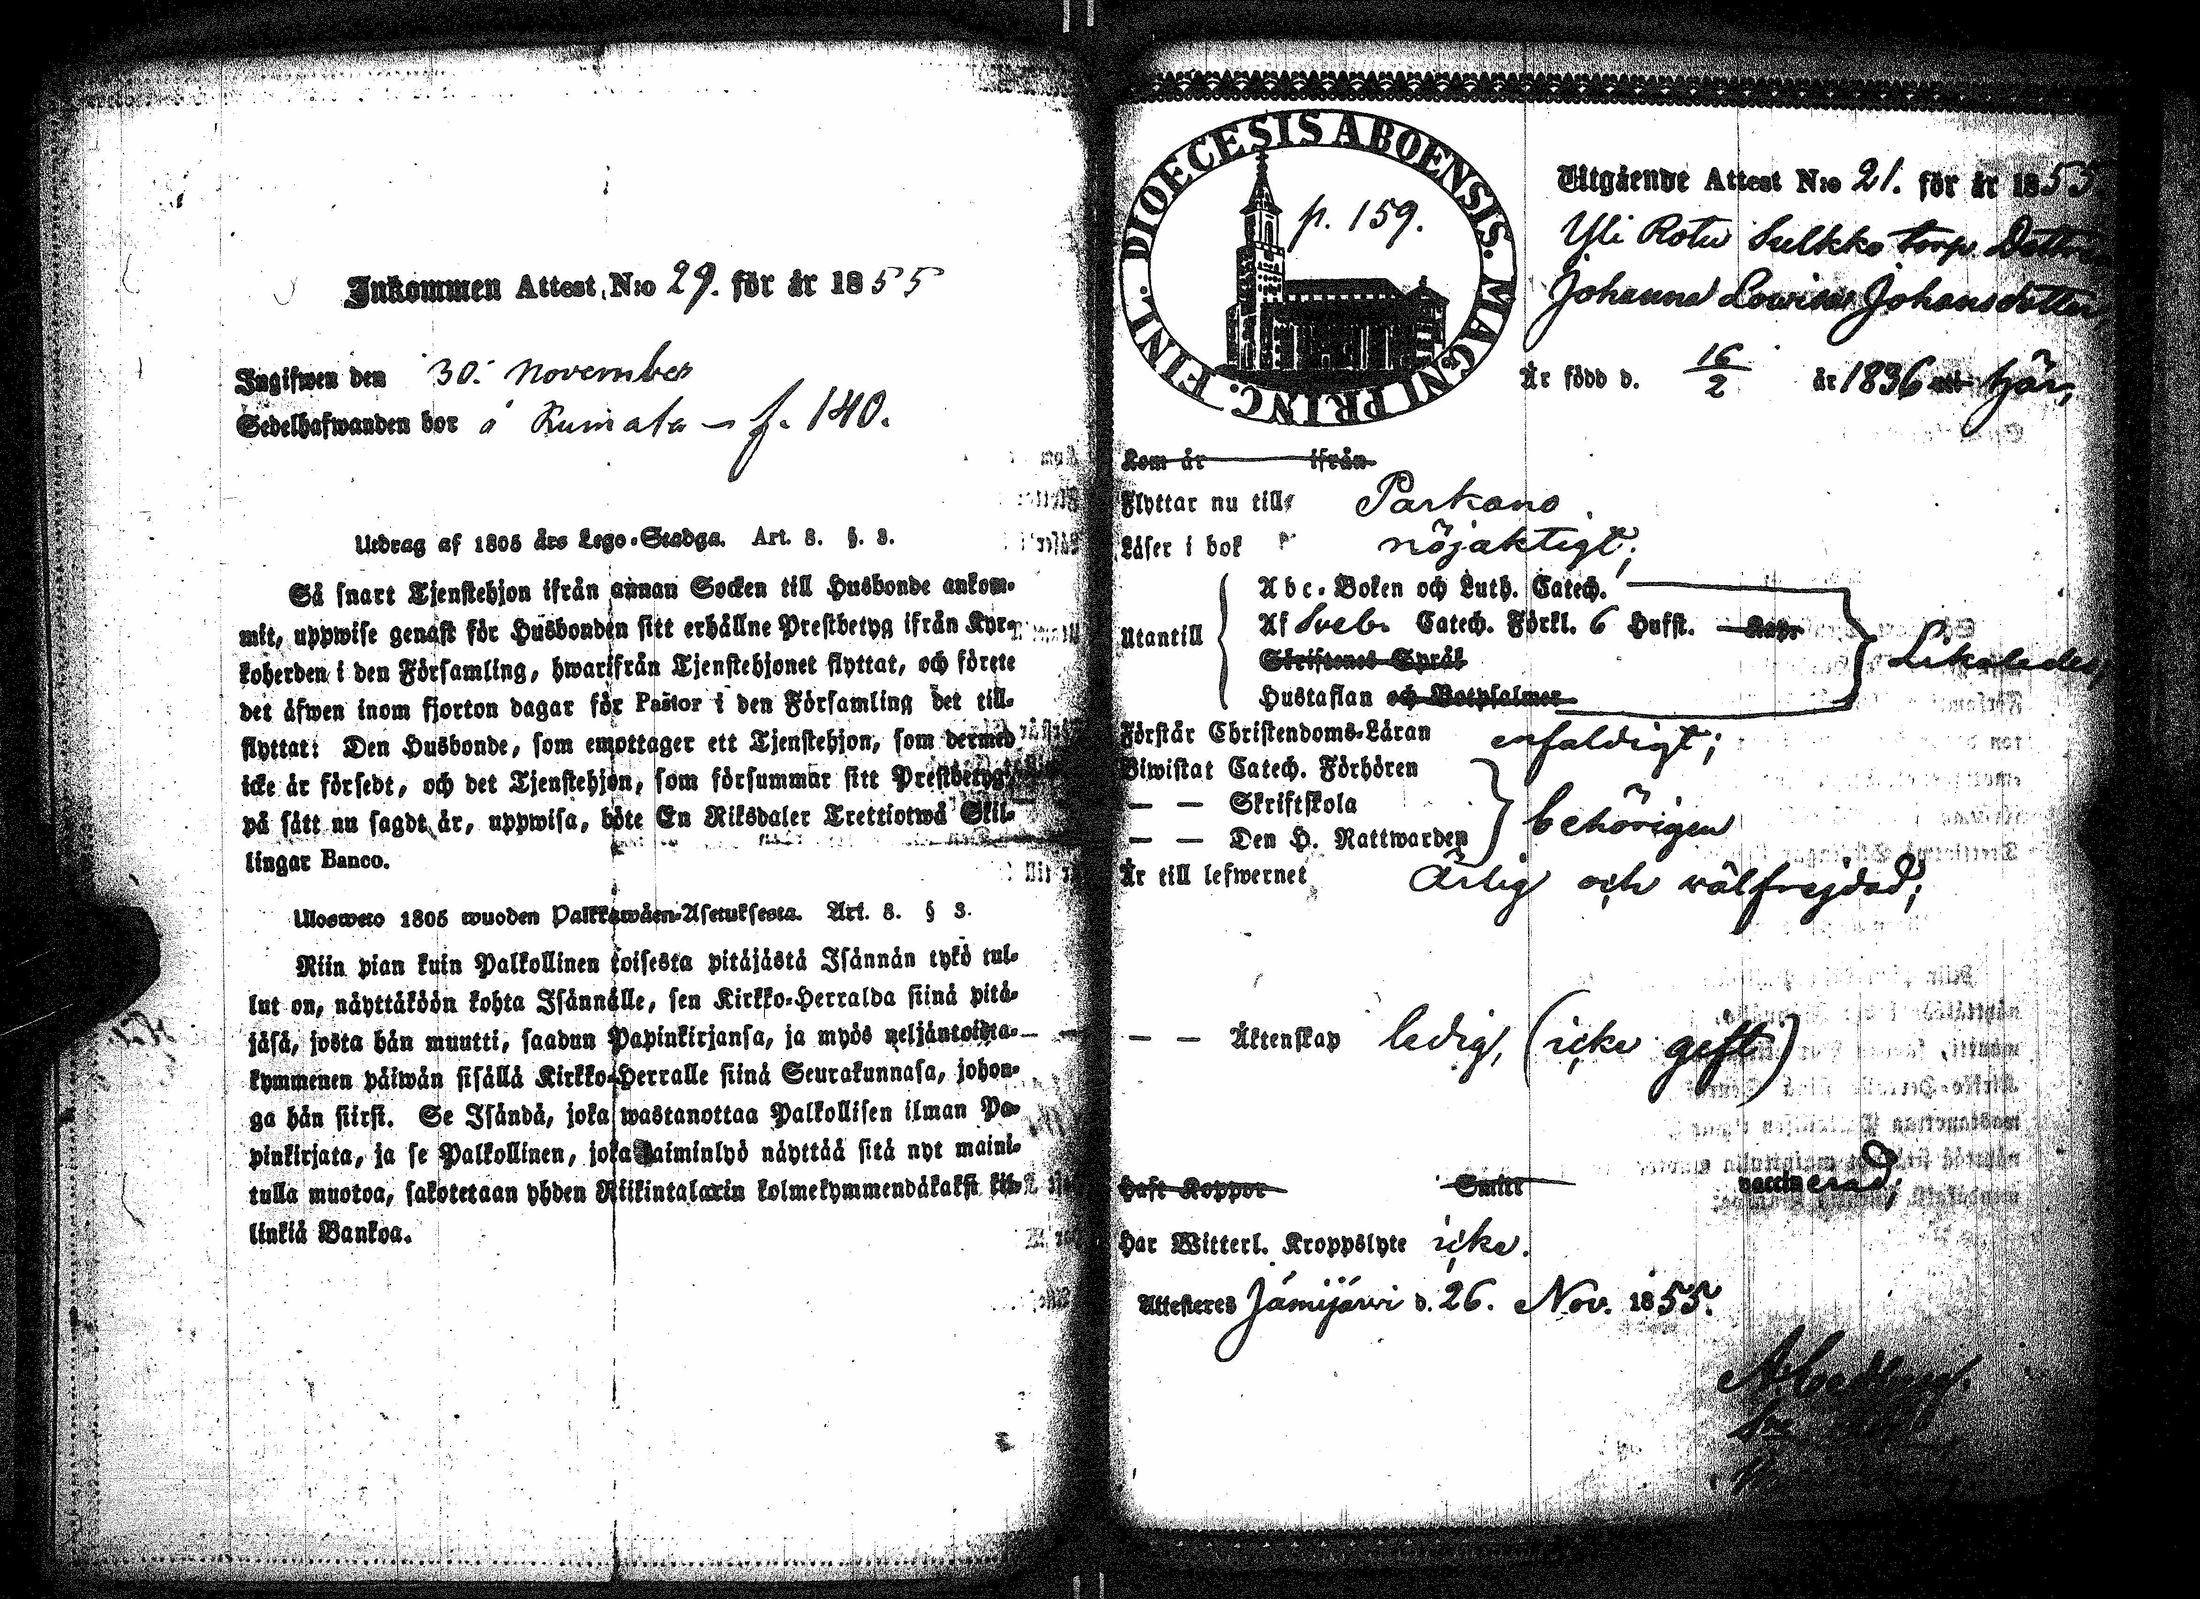 Inkommen Attest N:o 29. för år 1855
Ingifwen den 30. November
Sedelhafwanden bor å Kumata – f. 140.
Utdrag af 1805 års Lego-Stadga. Art. 8. §. 3.
Så snart Tjenstehjon ifrån annan Socken till Husbonde ankom-
mit, uppwise genast för Husbonden sitt erhållne Prestbetyg ifrån Kyr-
koherden i den Församling, hwarifrån Tjenstehjonet flyttat, och förete
det åfwen inom fjorton dagar för Pastor i den Församling det till-
flyttat: Den Husbonde, som emottager ett Tjenstehjon, som dermed
icke är försedt, och det Tjenstehjon, som försummar sitt Prestbetyg,
på sätt nu sagdt är, uppwisa, böte En Riksdaler Trettiotwå Skil-
lingar Banco.
Ulosweto 1805 wuoden Palkkawäen-Asetuksesta. Art. 8. § 3.
Niin pian kuin Palkollinen toisesta pitäjästä Isännän tykö tul-
lut on, näyttäköön kohta Isännälle, sen Kirkko-Herralda siinä pitä-
jäsä, josta hän muutti, saadun Papinkirjansa, ja myös neljäntoista-
kymmenen päiwän sisällä Kirkko-Herralle siinä Seurakunnasa, johon-
ga hän siirsi. Se Isändä, joka wastanottaa Palkollisen ilman Pa-
pinkirjata, ja se Palkollinen, joka laiminlyö näyttää sitä nyt maini-
tulla muotoa, sakotetaan yhden Riikintalarin kolmekymmendäkaksi kil-
linkiä Bankoa.
DIOECESIS ABOENSIS. MAGNI PRINC. FINL.
p. 159.
Utgående Attest N:o 21. för år 1855.
Yli Rotu Sulkko torp. Dottren
Johanna Lovisa Johansdotter,
Är född d. 16/2 år 1836 här,
Kom år ifrån
Flyttar nu till Parkano.
Läser i bok nöjaktigt;
Utantill
Abc-Boken och Luth. Catech.
Af Sveb. Catech. Förkl. 6 Hufst.
Skriftenes Språk
Hustaflan och Botpsalmer
Likaledes,
Förstår Christendoms-Läran enfaldigt;
Biwistat Catech. Förhören
— — Skriftskola
— — Den H. Nattwarden
behörigen
Är till lefwernet Ärlig och wälfrejdad;
— — Äktenskap ledig, (icke gift)
Haft Koppor Smitt vaccinerad;
Har Witterl. Kroppslyte icke.
Attesteres Jämijärvi d. 26. Nov. 1855.